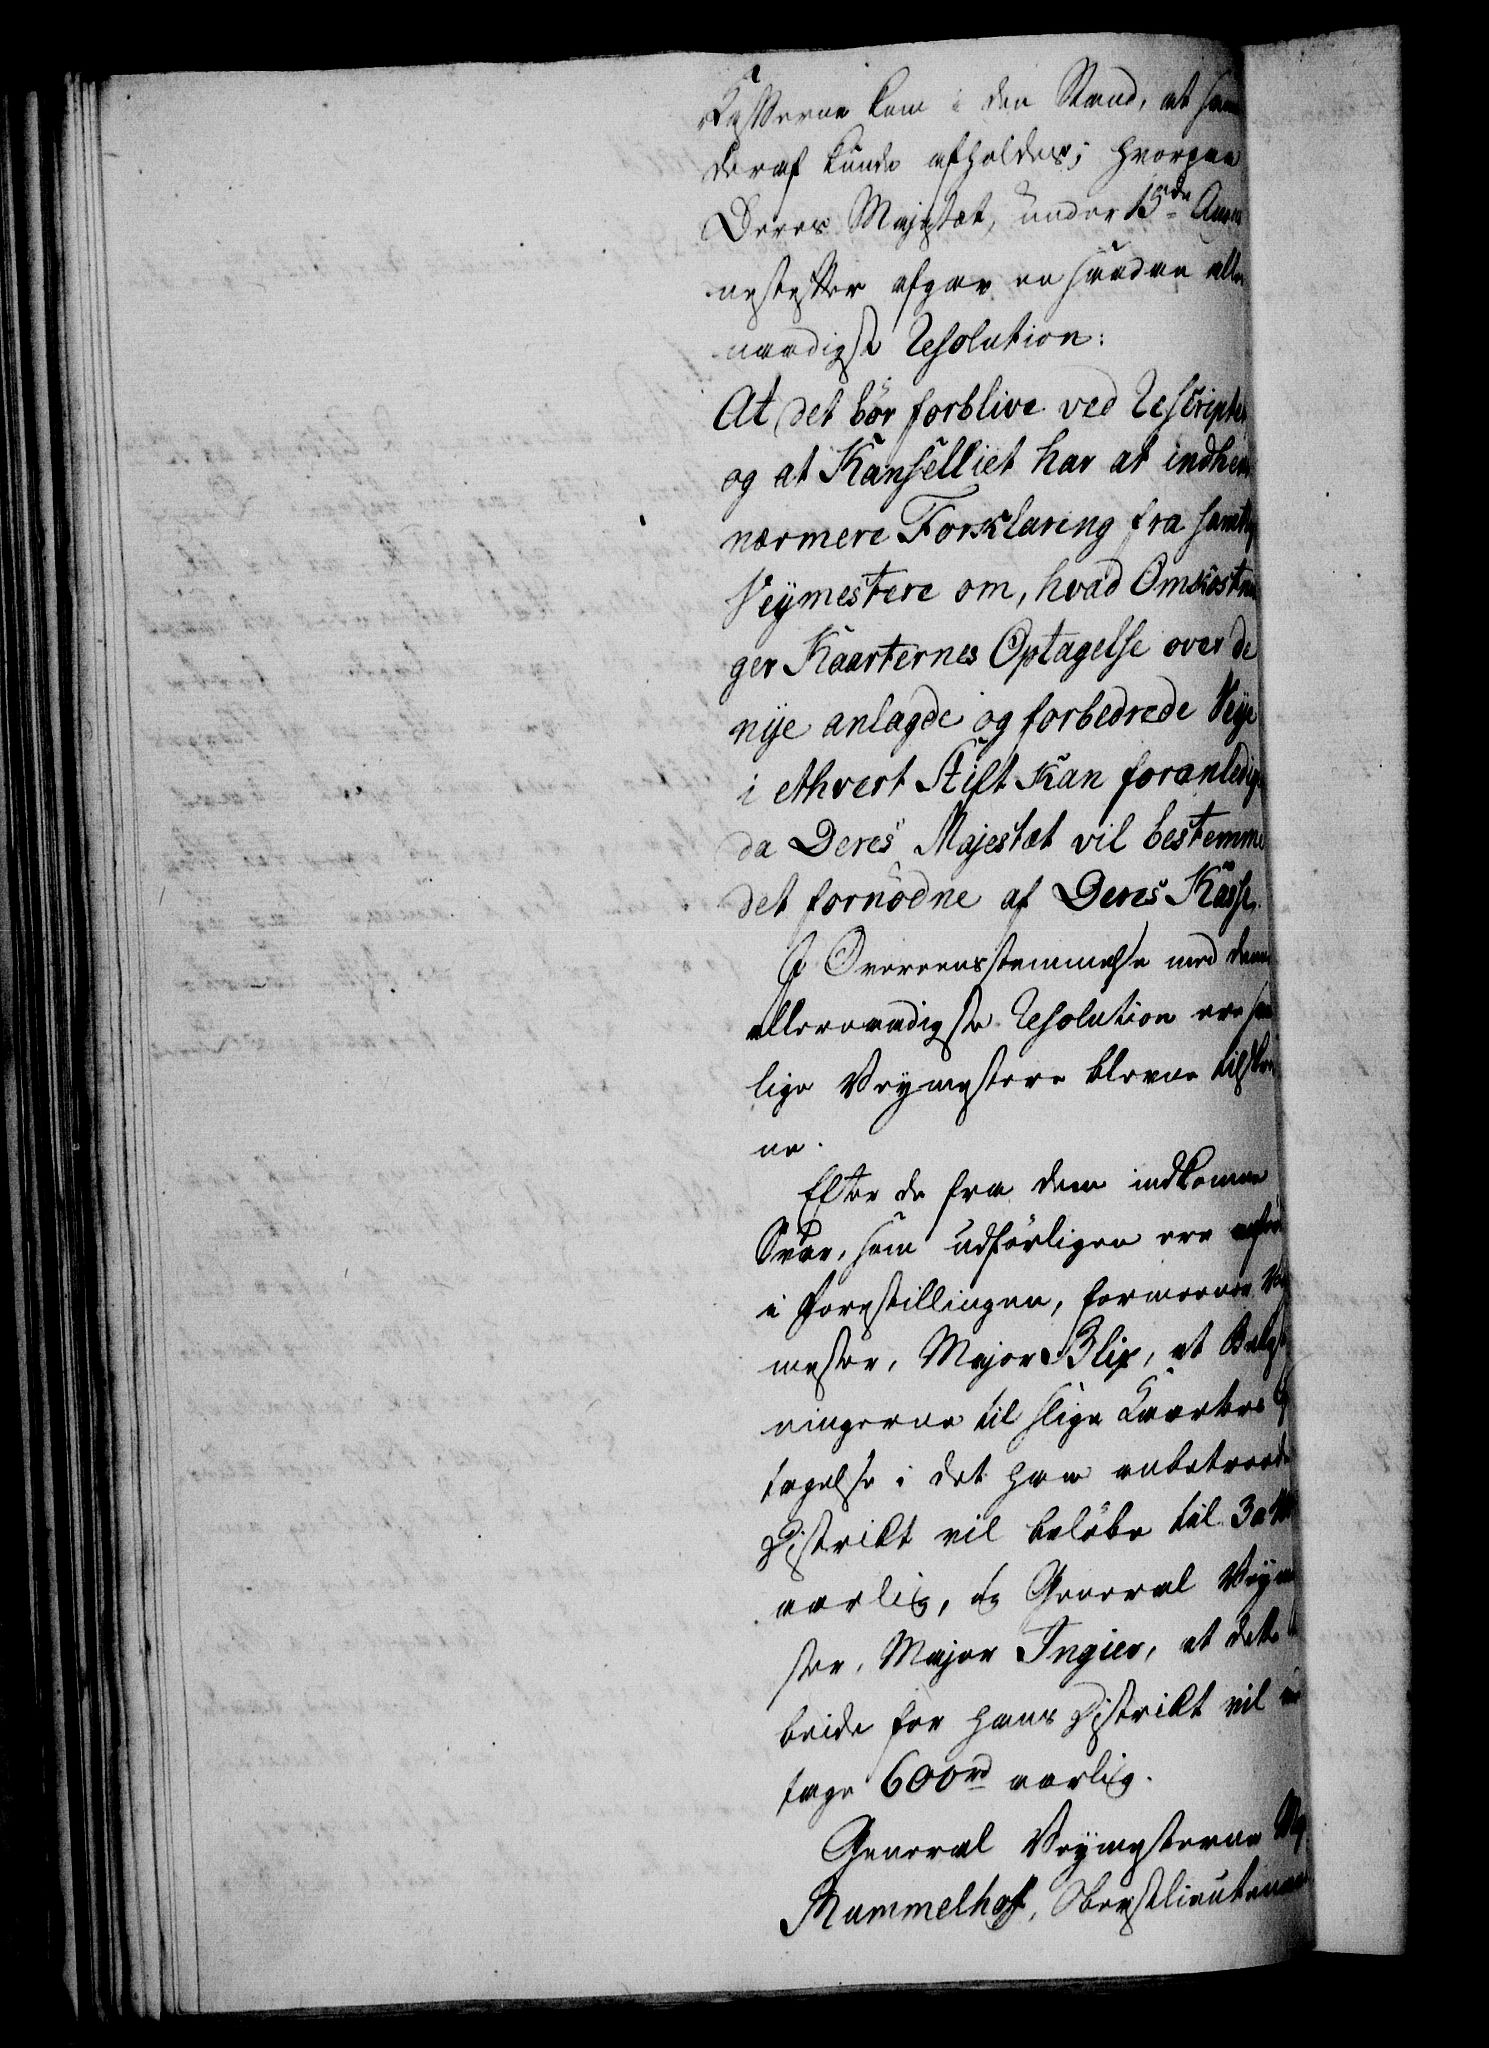 Kasserne kom i den Stand, at
deraf kunde afholdes; hvorpaa
Deres Majestæt, under 15de
nestefter afgav en saadan aller
naadigst Resolution:
At det bør forblive ved Rescriptet
og at Kanselliet har at indhen
nærmere Forklaring fra samtl
Veymestere om, hvad Omkostnin
ger Kaarternes Optagelse over de
nye anlagde og forbedrede Veye
i ethvert Stift kan foranledige
da Deres Majestæt vil bestemme
det fornødne af Deres Kasse.
I Overeensstemmelse med denne
allernaadigste Resolution ere sam
lige Veymestere blevne tilskrev
ne.
Efter de fra dem indkomne
Svar, som udførligen ere anfør
i Forestillingen, formeener Vey
mester, Major Blix, at Bekost
ningerne til slige Kaarters Op
tagelse i det ham anbetroede
District vil beløbe til 30
aarlig, og General Veyme
ster, Major Ingier, at dette Ar
beide for hans District vil
tage 600 rd aarlig.
General Veymesterne Maj
Rummelhof, Oberstlieutenant